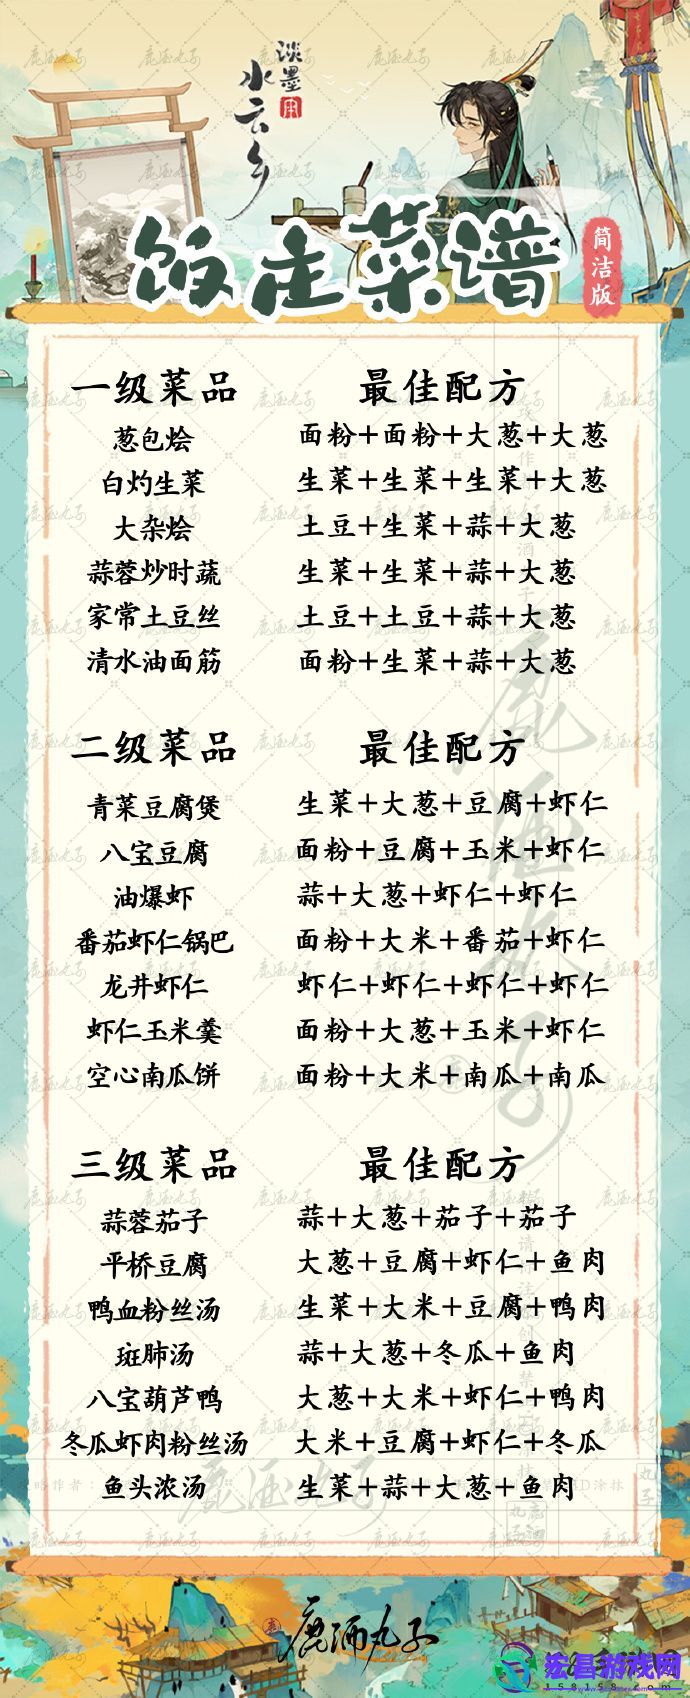 淡墨
水云乡
饭走菜谱
简洁版
一级菜品 最佳配方
葱包烩 面粉+面粉+大葱+大葱
白灼生菜 生菜+生菜+生菜+大葱
大杂烩 土豆+生菜+蒜+大葱
蒜蓉炒时蔬 生菜+生菜+蒜+大葱
家常土豆丝 土豆+土豆+蒜+大葱
清水油面筋 面粉+生菜+蒜+大葱
二级菜品 最佳配方
青菜豆腐煲 生菜+大葱+豆腐+虾仁
八宝豆腐 面粉+豆腐+玉米+虾仁
油爆虾 蒜+大葱+虾仁+虾仁
番茄虾仁锅巴 面粉+大米+番茄+虾仁
龙井虾仁 虾仁+虾仁+虾仁+虾仁
虾仁玉米羹 面粉+大葱+玉米+虾仁
空心南瓜饼 面粉+大米+南瓜+南瓜
三级菜品 最佳配方
蒜蓉茄子 蒜+大葱+茄子+茄子
平桥豆腐 大葱+豆腐+虾仁+鱼肉
鸭血粉丝汤 生菜+大米+豆腐+鸭肉
斑肺汤 蒜+大葱+冬瓜+鱼肉
八宝葫芦鸭 大葱+大米+虾仁+鸭肉
冬瓜虾肉粉丝汤 大米+豆腐+虾仁+冬瓜
鱼头浓汤 生菜+蒜+大葱+鱼肉
鹿酒丸子
宏昌游戏网
158158.com